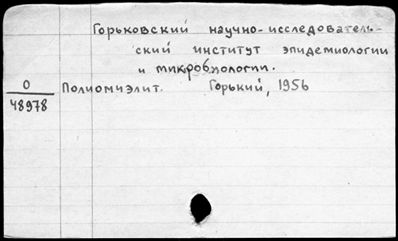 Горьковский научно-исследователь-
ский институт эпидемиологии
и микробиологии.
О
48978
Полиомиэлит. Горький, 1956